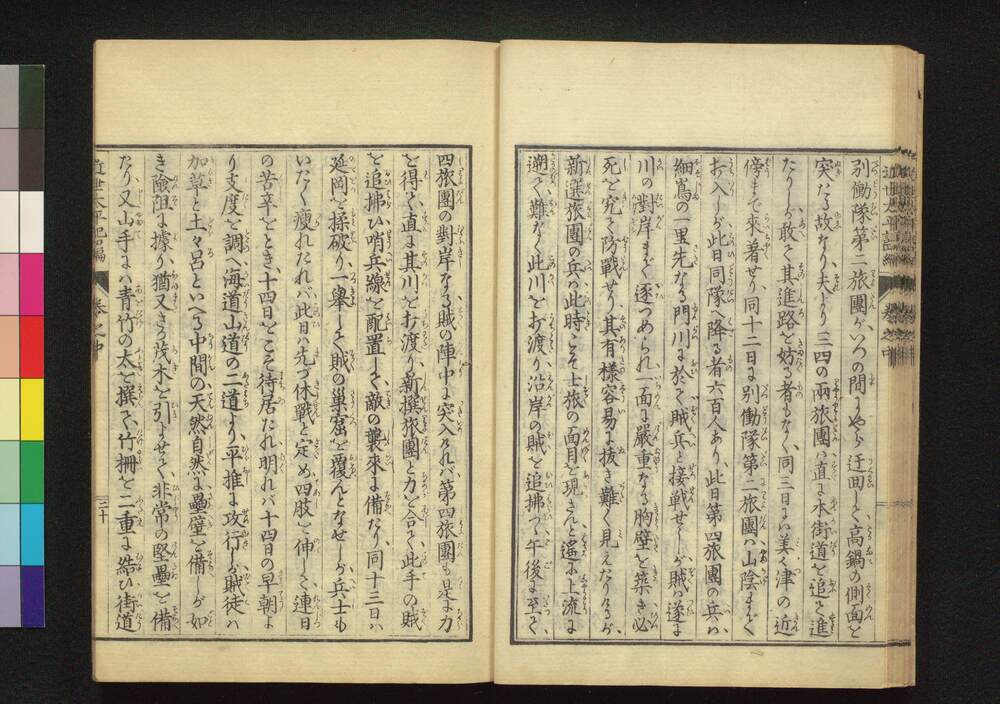 別働隊第二旅團ガいつの間にやら迂回して高鍋の側面を
突たる故なり夫より三四の兩旅團ハ直に本街道を追ふて進
たりしが敢て其進路を妨る者もなく同三日にハ美々津の近
傍まで來着せり同十二日に別働隊第二旅團ハ山陰まで
お入しが此日同隊へ降る者六百人あり此日第四旅團の兵ハ
細嶌の一里先なる門川に於て賊兵と接戦せしが賊ハ遂に
川の對岸まで逐つめられ一面に嚴重なる胸壁を築き必
死を究て防戦せり其有樣容易に抜き難く見えたりけるが
新選旅團の兵ハ此時こそ士旅の面目を現さんと遙に上流に
遡て難なく此川をお渡り沿岸の賊を追拂つゝ午後に至て
四旅團の對岸なる賊の陣中に突入けれバ第四旅團も是に力
を得て直に其川をお渡り新撰旅團と力を合て此手の賊
を追拂ひ哨兵線を配置して敵の襲來に備たり同十三日ハ
延岡を揉破り一舉して賊の巣窟を覆んとなせしが兵士も
いたく瘦れたれバ此日ハ先づ休戦と定め四肢を伸して連日
の苦辛をとき十四日をこそ待居たれ明れバ十四日の早朝よ
り支度を調へ海道山道の二道より平推に攻行しが賊徒ハ
加草と土々呂といへる中間の天然自然に壘壁を備しが如
き險阻に據り猶又さか茂木を引よせて非常の堅壘を備
たり又山手にハ青竹の太を撰て竹柵を二重に結ひ街道
近世太平記二編
巻之中
三十